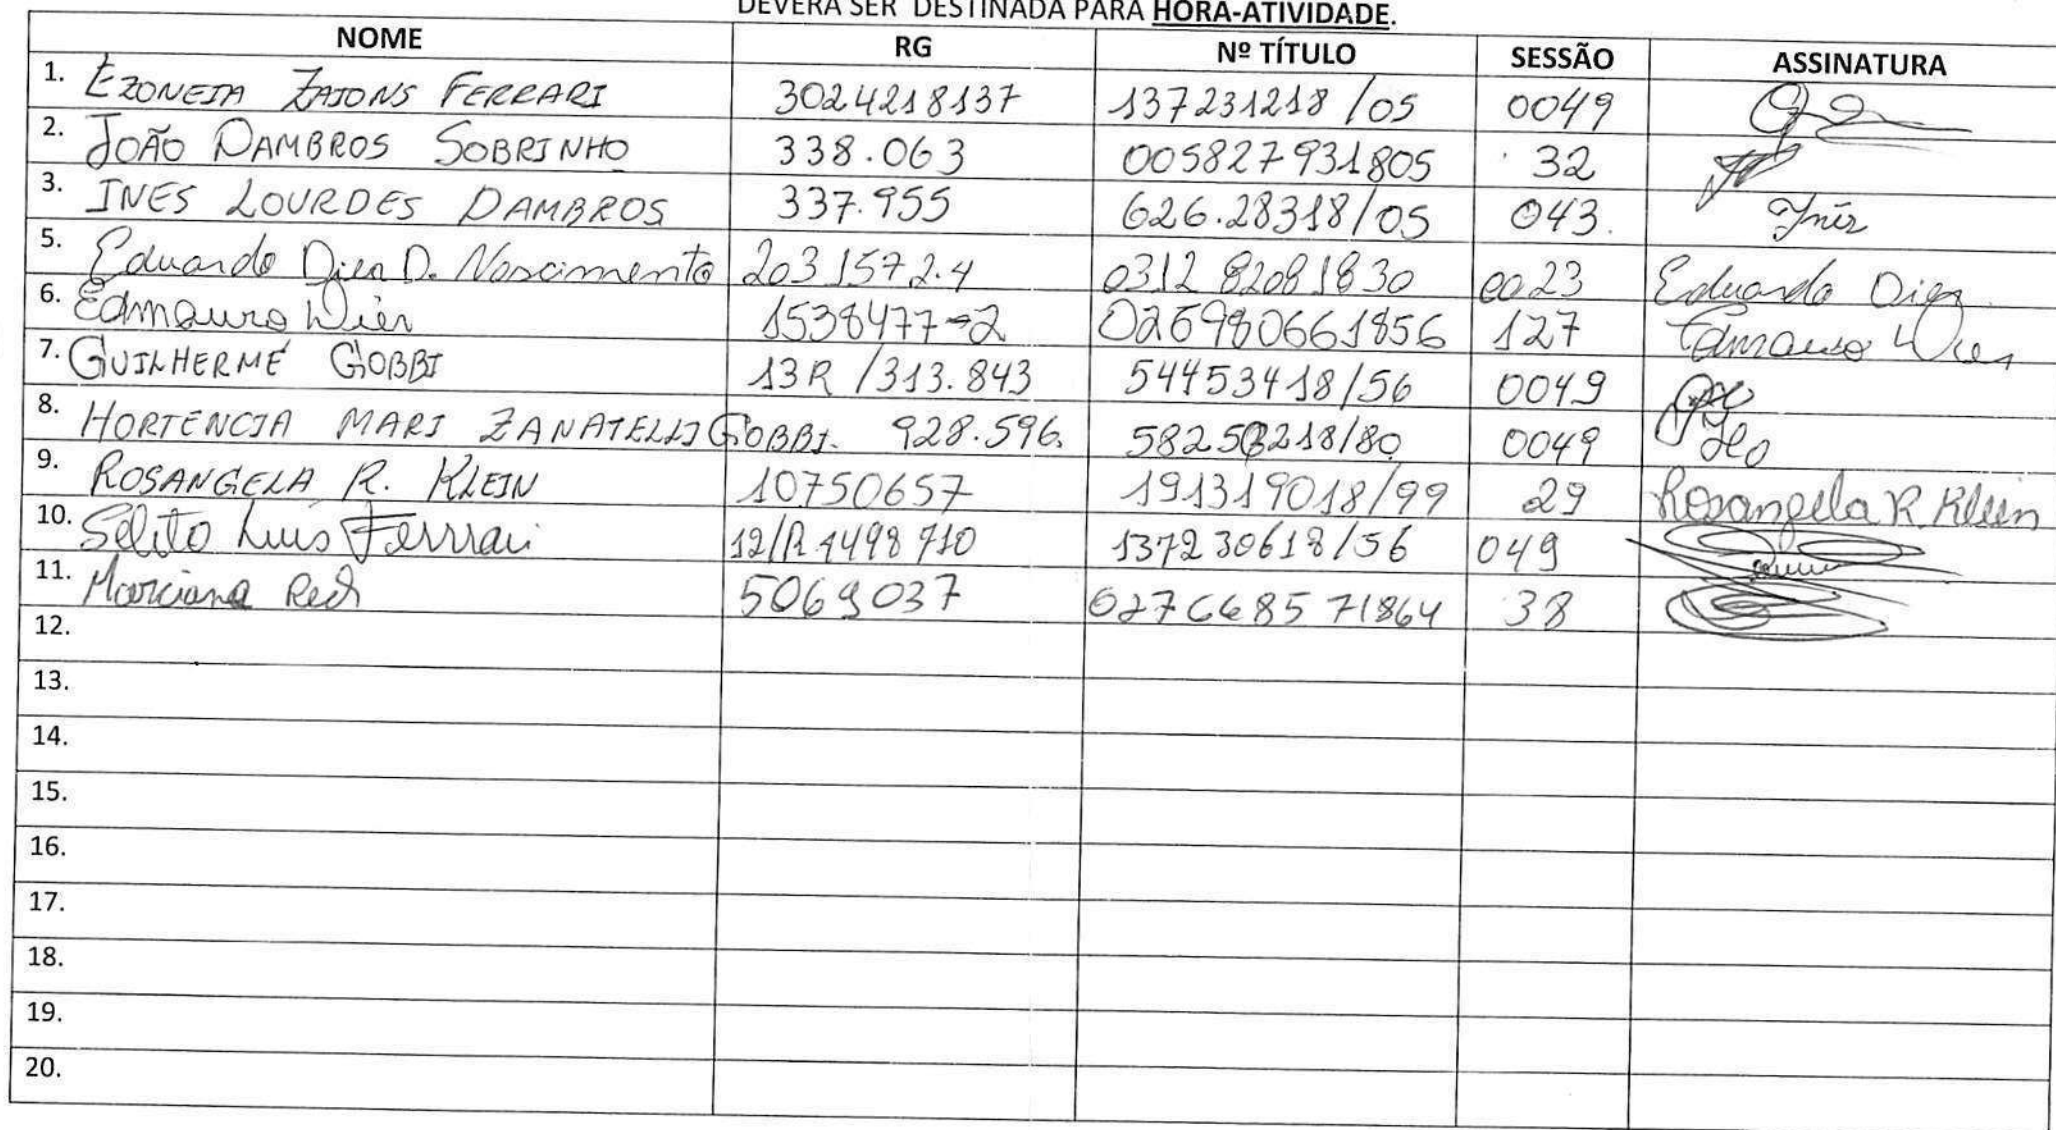 DEVERÁ SER DESTINADA PARA HORA-ATIVIDADE.
NOME RG Nº TÍTULO SESSÃO ASSINATURA
1. EZONEIA ZAIONS FERRARI 3024218137 137231218/05 0049
2. JOÃO DAMBROS SOBRINHO 338.063 005827931805 32
3. INES LOURDES DAMBROS 337.955 626.28318/05 043. Inês
5. Eduardo Dier D. Nascimento 2031572.4 0312 8208 1830 0023 Eduardo Dier
6. Edmauro Wier 1538477-2 026980661856 127 Edmauro Wier
7. GUILHERME GOBBI 13R/313.843 54453418/56 0049
8. HORTENCIA MARI ZANATELLI GOBBI. 928.596. 0049
9. ROSANGELA R. KLEIN 10750657 191319018/99 29 Rosangella R. Klein
10. Selito Luis Ferrari 12/R 1498 710 137230618/56 049
11. Marciana Rech 5069037 38
12.
13.
14.
15.
16.
17.
18.
19.
20.